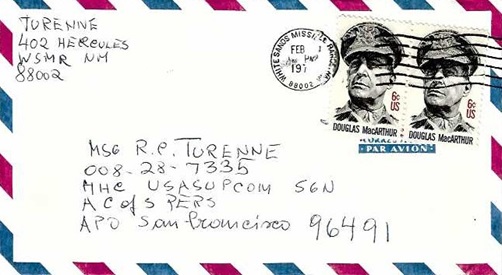 TURENNE
402 HERCULES
WSMR NM
88002
WHITE SANDS MISSILE RANGE, NM
FEB
PM
197
88002
6c
US
DOUGLAS MacARTHUR
6c
US
DOUGLAS MacARTHUR
PAR AVION
MSG R.P. TURENNE
008-28-7335
MHC USASUPCOM SGN
AC of S PERS
APO San Francisco 96491